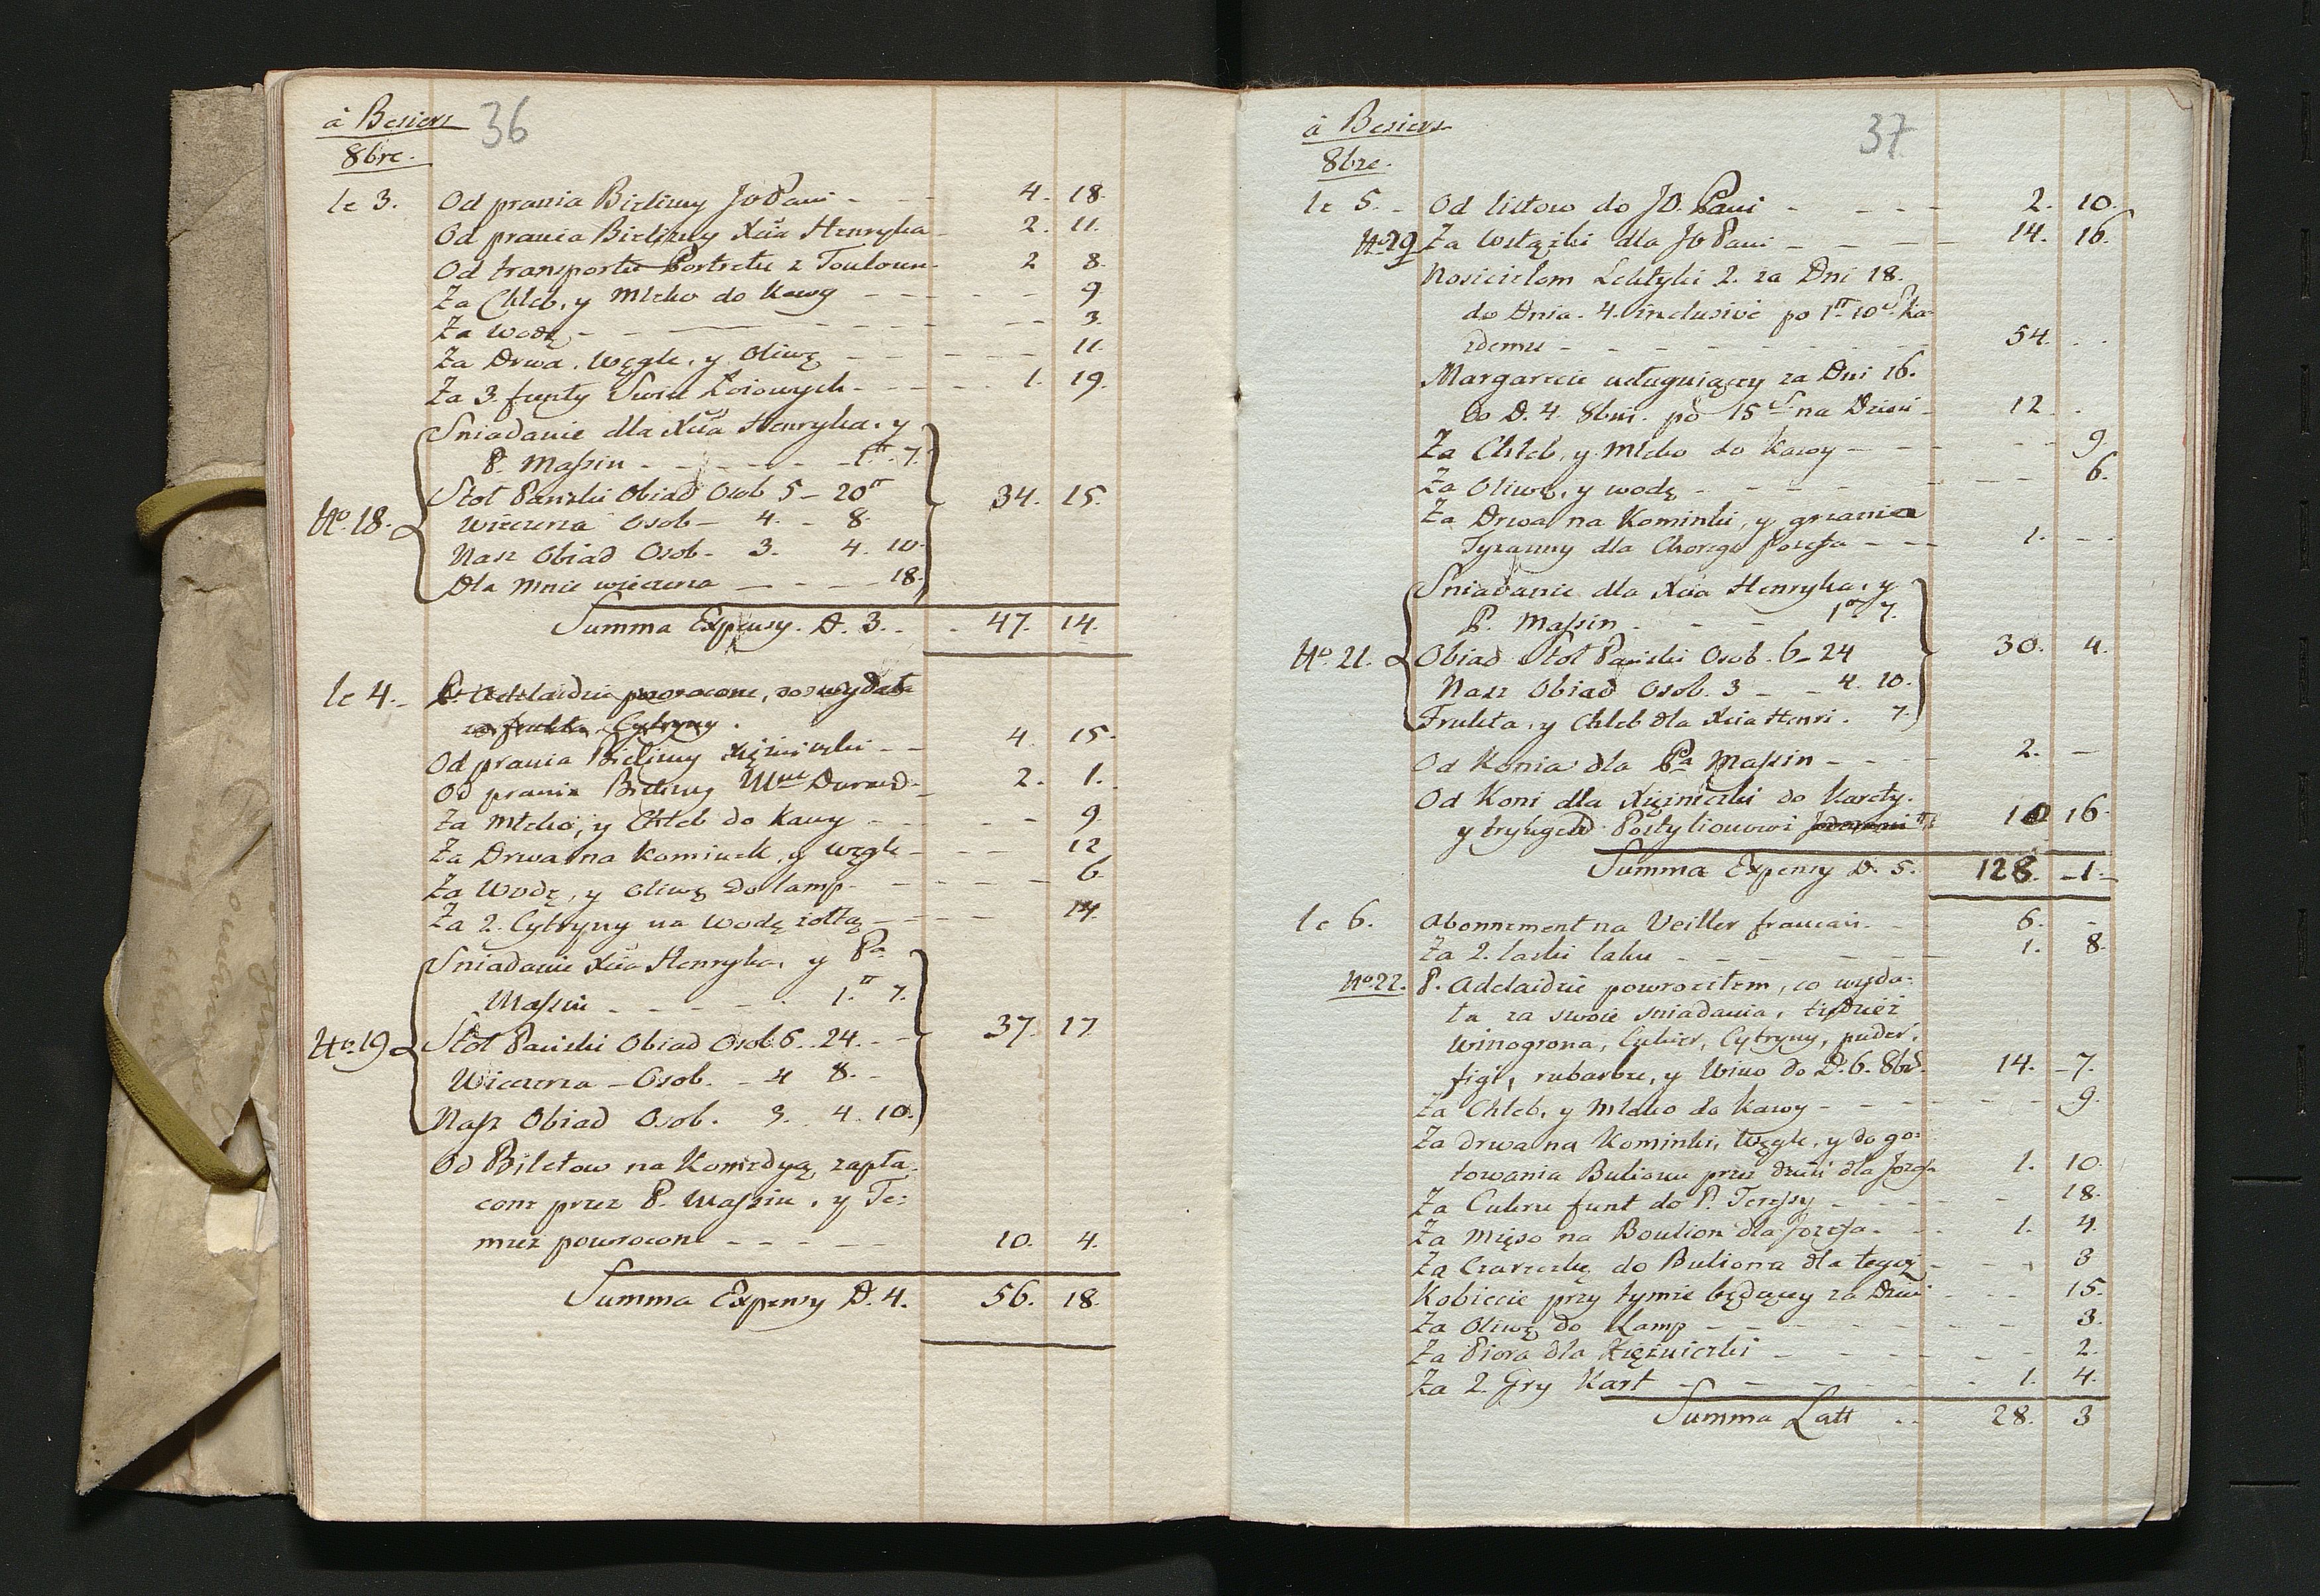 à Besiers 36
8bre.
le 3. Od prania Bielizny JO Pani - - - 4. 18.
Od prania Bielizny Xcia Henryka - 2. 11.
Od transportu Portretu z Toulouse - 2 8.
Za Chleb, y Mleko do Kawy - - - - 9
Za Wodę - - - - - - 3.
Za Drwa, Węgle, y Oliwę - - - - 11
Za 3. funty Swiec Łoiowych - - - - 1. 19.
Sniadanie dla Xcia Henryka, y
P. Massin - - - - - - 1.tt 7.
No. 18. Stoł Panski Obiad Osob 5 - 20tt 34. 15.
Wieczerza Osob - 4. - 8.
Nasz Obiad Osob - 3. 4. 10.
Dla Mnie wieczerza - - - - 18.
Summa Expensy. D. 3. - 47. 14.
le 4. - P. Adelaidzie powrocone, co wydała
za frukta, Cytryny.
Od prania Bielizny Xiężniczki - - 4. 15.
Od prania Bielizny Mme Durand - 2. 1.
Za Mleko, y Chleb do Kawy - - - - 9
Za Drwa na Kominek, y węgle - - - 12
Za Wodę, y Oliwę do lamp - - - - - 6
Za 2. Cytryny na Wodę żołtą - - - - 14.
Sniadanie Xcia Henryka, y Pa
Massin - - - - 1.tt 7.
No. 19 Stoł Panski Obiad Osob 6. . 24. - - 37. 17
Wieczerza - Osob. - 4 8. -
Nasz Obiad Osob. 3. . 4. 10.
Od Biletow na Komedyą, zapła-
cone przez P. Massin, y Te-
muż powrocone - - - - - 10. 4.
Summa Expensy D. 4. 56. 18.
à Besiers 37
8bre.
le 5. - Od listow do JO. Pani - - - - 2. 10.
No. 20 Za Wstążki dla JO Pani - - - - 14. 16.
Nosicielom Lektyki 2. za Dni 18.
do Dnia. 4. inclusive po 1tt. 10s. Ka-
żdemu - - - - - - - 54. . .
Margarecie usługuiącey za Dni 16.
do D. 4. 8bris. po 15 s. na Dzień - 12. .
Za Chleb, y Mleko do Kawy - - - - - 9.
Za Oliwę, y wodę - - - - - - - 6.
Za Drwa na Kominki, y grzania
Tyzanny dla Chorego Jozefa - - - 1. - -
Sniadanie dla Xcia Henryka, y
P. Massin - - - 1tt 7.
No. 21. Obiad Stoł Panski Osob. 6 - 24 30. 4.
Nasz Obiad Osob. 3 - - 4. 10.
Frukta, y Chleb dla Xcia Henri. 7.
Od Konia dla Pa Massin - - - - 2. -
Od Koni dla Xiężniczki do Karety.
y tryngeld Postylionowi 10 16.
Summa Expensy D. 5. 128. - 1. -
le 6. Abonnement na Veiller francais. - 6. -
Za 2. laski laku - - - - - - 1. 8.
No. 22. P. Adelaidzie powrociłem, co wyda-
ła za swoie sniadania, tudzież
Winogrona, Cukier, Cytryny, puder,
figi, rubarbę, y Wino do D. 6. 8bris. 14. - 7.
Za Chleb, y Mleko do Kawy - - - - - - 9.
Za drwa na Kominki, Węgle, y do go-
towania Bulionu przez dzień dla Jozefa 1. 10.
Za Cukru funt do P. Teressy - - - - - 18.
Za Mięso na Boulion dla Jozefa - - - 1. 4.
Za Czareczkę do Buliona dla tegoż - - - 3
Kobiecie przy tymże będącey za Dzień - - - 15.
Za Oliwę do Lamp - - - - - - - 3.
Za Piora dla Xiężniczki - - - - - - 2.
Za 2. Gry Kart - - - - - - 1. 4.
Summa Latt - - 28. 3